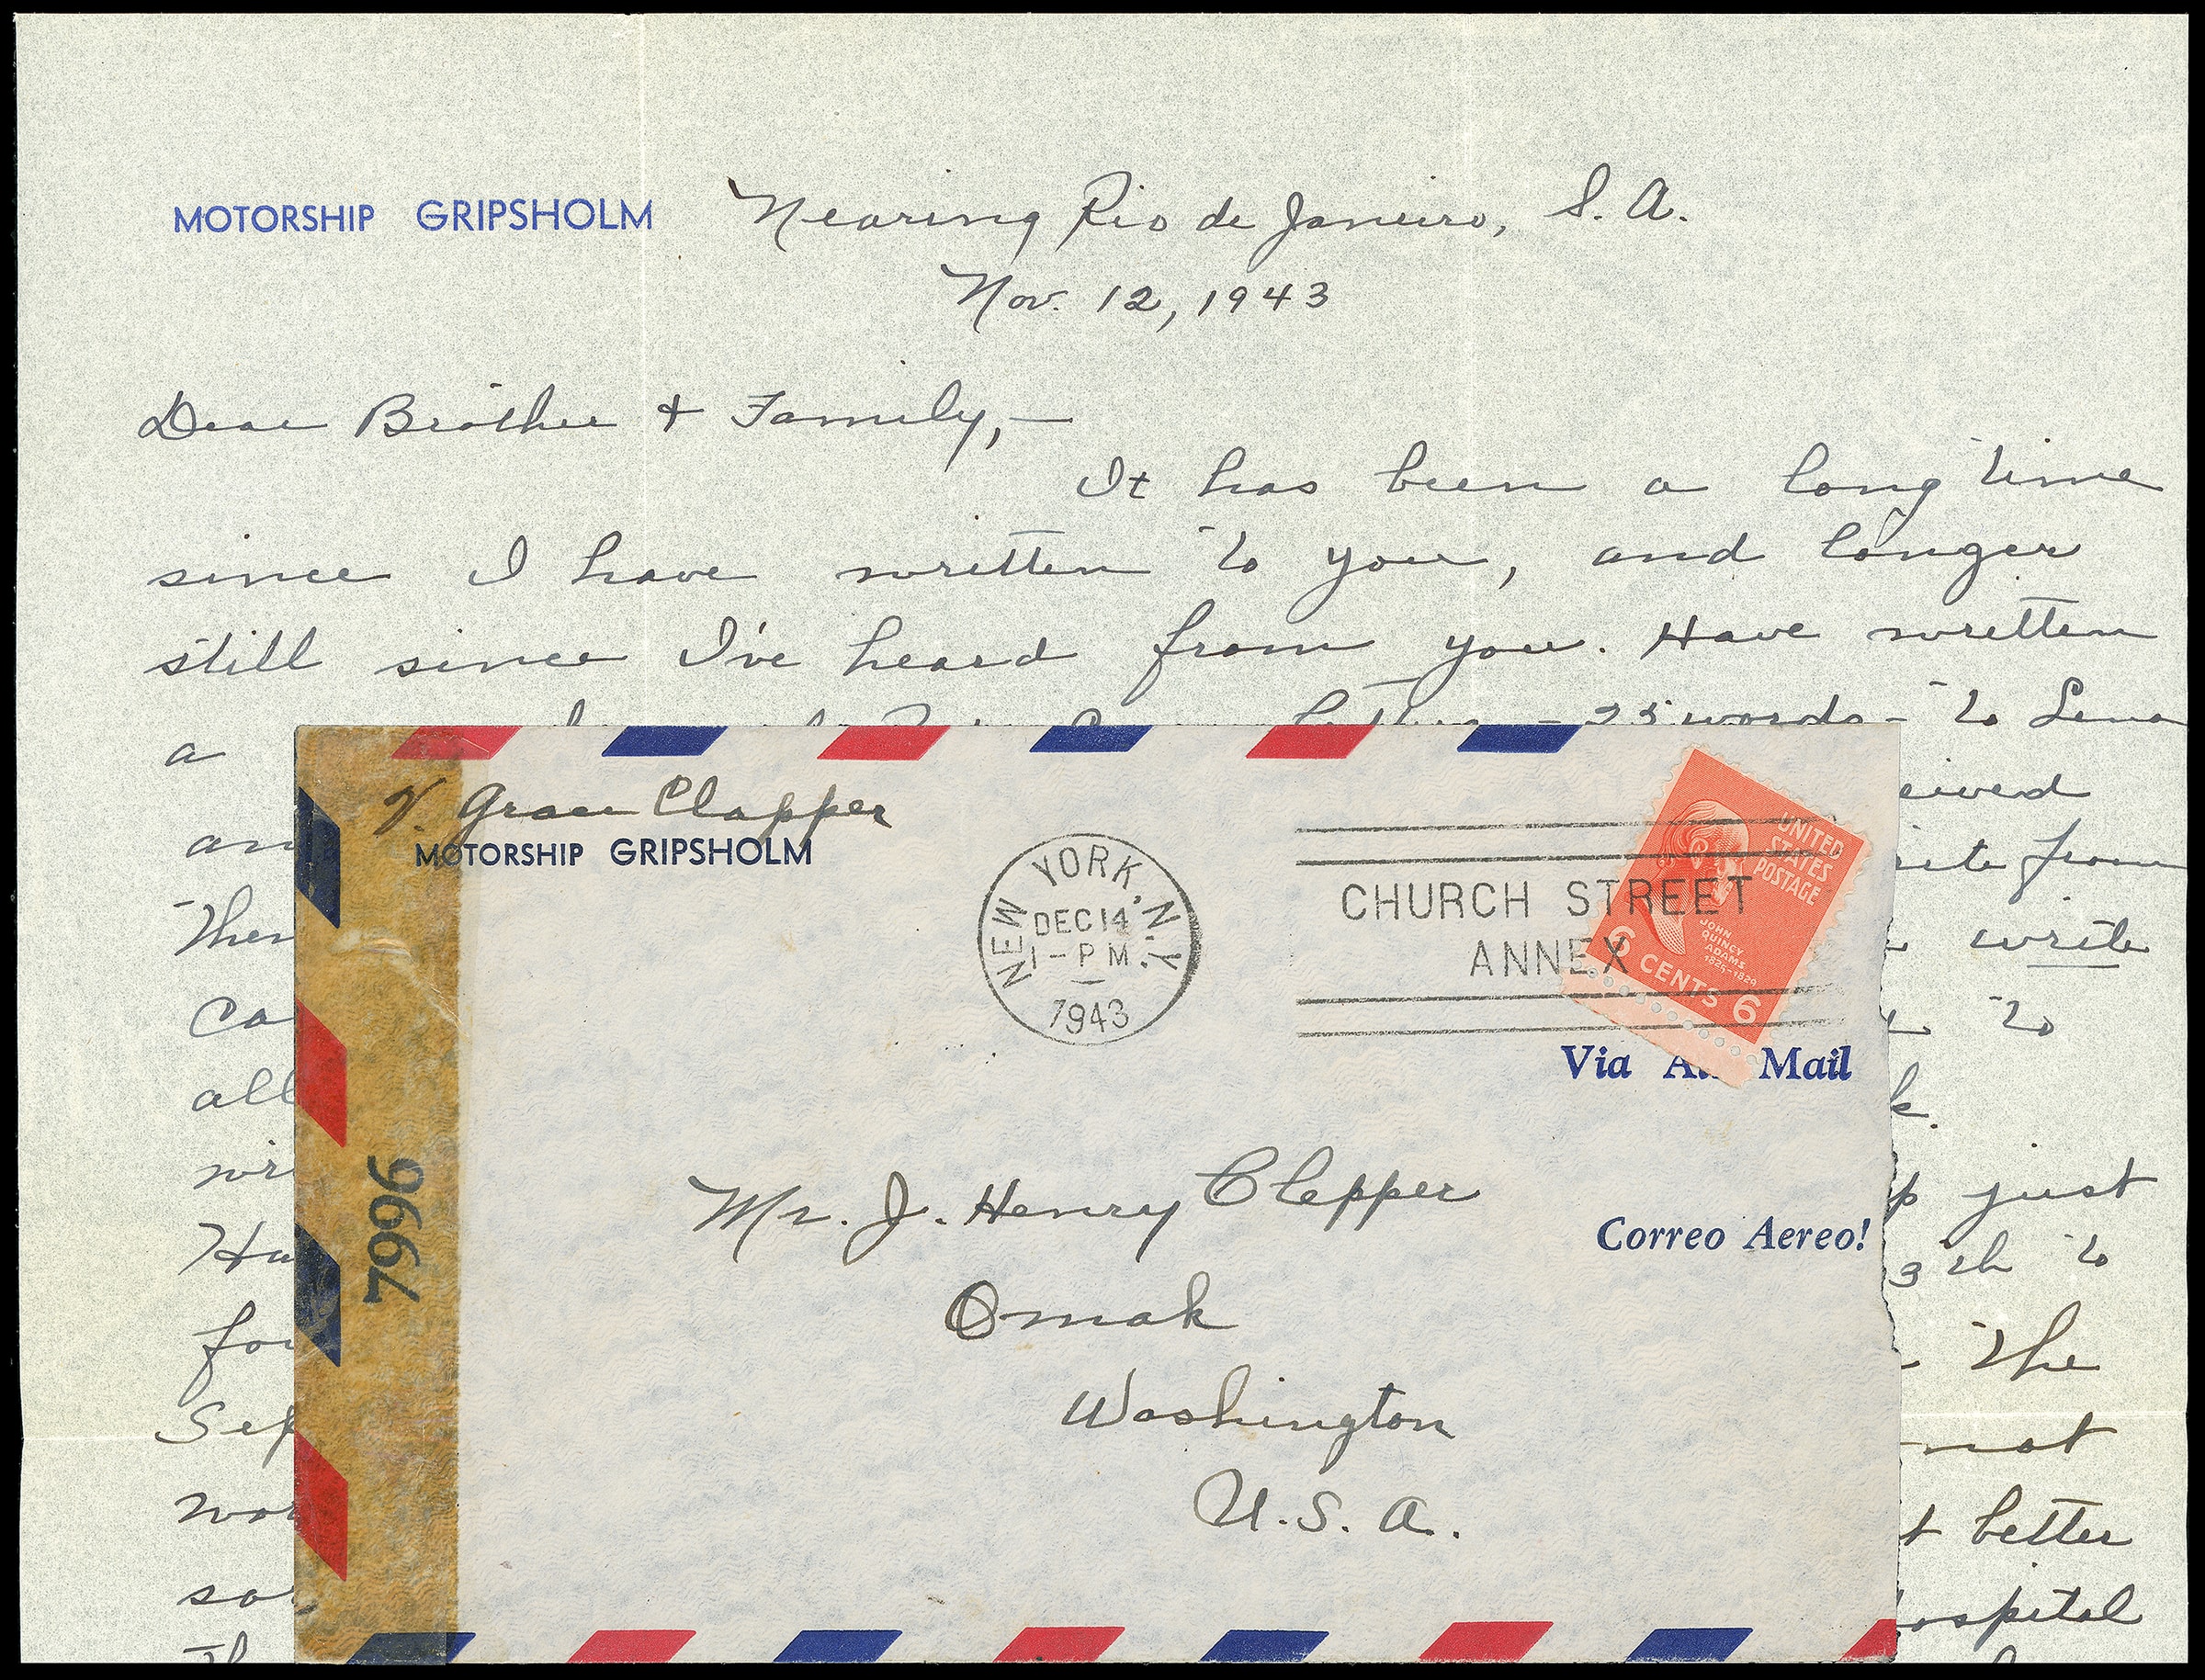 MOTORSHIP GRIPSHOLM Nearing Rio de Janeiro, S. A.
Nov. 12, 1943
Dear Brother & Family,—
It has been a long time
since I have written to you, and longer
still since I've heard from you. Have written
a - 25 words - to Lena
eived
an rite from
Then write
Ca to
all k.
wr
Ha p just
fou 3th to
Sep the
wor not
so t better
Th ospital
V. Grace Clapper
MOTORSHIP GRIPSHOLM
NEW YORK, N.Y.
DEC 14
1 - PM
1943
CHURCH STREET
ANNEX
UNITED
STATES
POSTAGE
JOHN
QUINCY
ADAMS
1825-1829
6 CENTS 6
Via Mail
Correo Aereo!
7996
Mr. J. Henry Clepper
Omak
Washington
U. S. A.